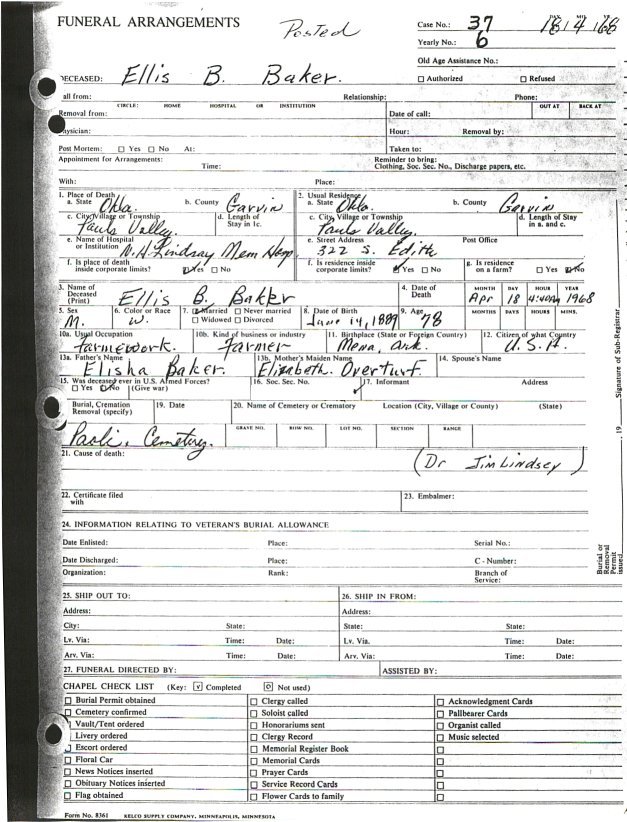 FUNERAL ARRANGEMENTS
Posted
Case No.: 37
Yearly No.: 6
Old Age Assistance No.:
Authorized Refused
DECEASED: Ellis B. Baker.
all from: Relationship: Phone:
CIRCLE: HOME HOSPITAL OR INSTITUTION OUT AT BACK AT
Removal from: Date of call:
ysician: Hour: Removal by:
Post Mortem: Yes No At: Taken to:
Appointment for Arrangements: Time: Reminder to bring: Clothing, Soc. Sec. No., Discharge papers, etc.
With: Place:
1. Place of Death 2. Usual Residence
a. State Okla. b. County Garvin a. State Okla. b. County Garvin
c. City, Village or Township Pauls Valley. d. Length of Stay in 1c. c. City, Village or Township Pauls Valley. d. Length of Stay in a. and c.
e. Name of Hospital or Institution W.H. Lindsay Mem Hosp. e. Street Address 322 S. Edith Post Office
f. Is place of death inside corporate limits? Yes No f. Is residence inside corporate limits? Yes No g. Is residence on a farm? Yes No
3. Name of Deceased (Print) Ellis B. Baker 4. Date of Death MONTH DAY HOUR YEAR Apr 18 4:40Am 1968
5. Sex M. 6. Color or Race W. 7. Married Never married Widowed Divorced 8. Date of Birth June 14, 1889 9. Age 78 MONTHS DAYS HOURS MINS.
10a. Usual Occupation farmework. 10b. Kind of business or industry farmer 11. Birthplace (State or Foreign Country) Mena, Ark. 12. Citizen of what Country U.S.A.
13a. Father's Name Elisha Baker. 13b. Mother's Maiden Name Elizabeth Overturf. 14. Spouse's Name
15. Was deceased ever in U.S. Armed Forces? Yes No (Give war) 16. Soc. Sec. No. 17. Informant Address
Burial, Cremation Removal (specify) 19. Date 20. Name of Cemetery or Crematory Location (City, Village or County) (State)
Paoli, Cemetery. GRAVE NO. ROW NO. LOT NO. SECTION RANGE
21. Cause of death: (Dr Jim Lindsey)
22. Certificate filed with 23. Embalmer:
24. INFORMATION RELATING TO VETERAN'S BURIAL ALLOWANCE
Date Enlisted: Place: Serial No.:
Date Discharged: Place: C - Number:
Organization: Rank: Branch of Service:
25. SHIP OUT TO: 26. SHIP IN FROM:
Address: Address:
City: State: State: State:
Lv. Via: Time: Date: Lv. Via. Time: Date:
Arv. Via: Time: Date: Arv. Via: Time: Date:
27. FUNERAL DIRECTED BY: ASSISTED BY:
CHAPEL CHECK LIST (Key: v Completed o Not used)
Burial Permit obtained Clergy called Acknowledgment Cards
Cemetery confirmed Soloist called Pallbearer Cards
Vault/Tent ordered Honorariums sent Organist called
Livery ordered Clergy Record Music selected
Escort ordered Memorial Register Book
Floral Car Memorial Cards
News Notices inserted Prayer Cards
Obituary Notices inserted Service Record Cards
Flag obtained Flower Cards to family
Form No. 8361 KELCO SUPPLY COMPANY, MINNEAPOLIS, MINNESOTA
Signature of Sub-Registrar
19
Burial or Removal Permit issued